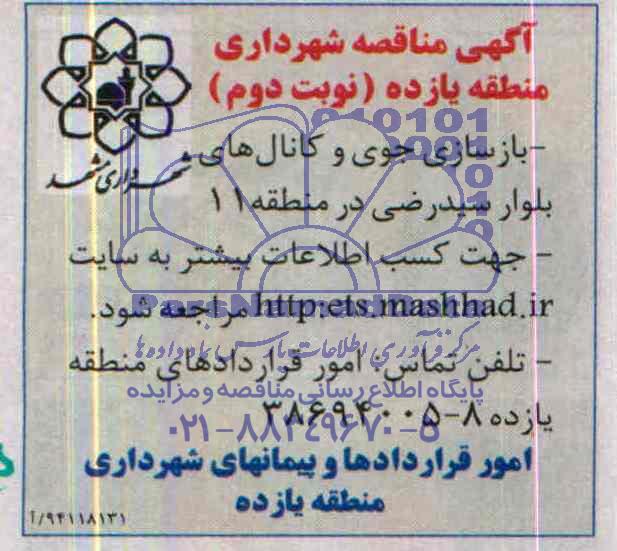 آگهی مناقصه شهرداری
منطقه یازده (نوبت دوم)
شهرداری مشهد
-بازسازی جوی و کانال‌های
بلوار سیدرضی در منطقه ۱۱
- جهت کسب اطلاعات بیشتر به سایت
http:ets.mashhad.ir مراجعه شود.
مرکز فرآوری اطلاعات پارس نماد داده‌ها
- تلفن تماس: امور قراردادهای منطقه
پایگاه اطلاع رسانی مناقصه و مزایده
یازده ۸-۳۸۶۹۴۰۰۵
۰۲۱-۸۸۳۴۹۶۷۰-۵
امور قراردادها و پیمانهای شهرداری
منطقه یازده
۹۴۱۱۸۱۳۱/آ